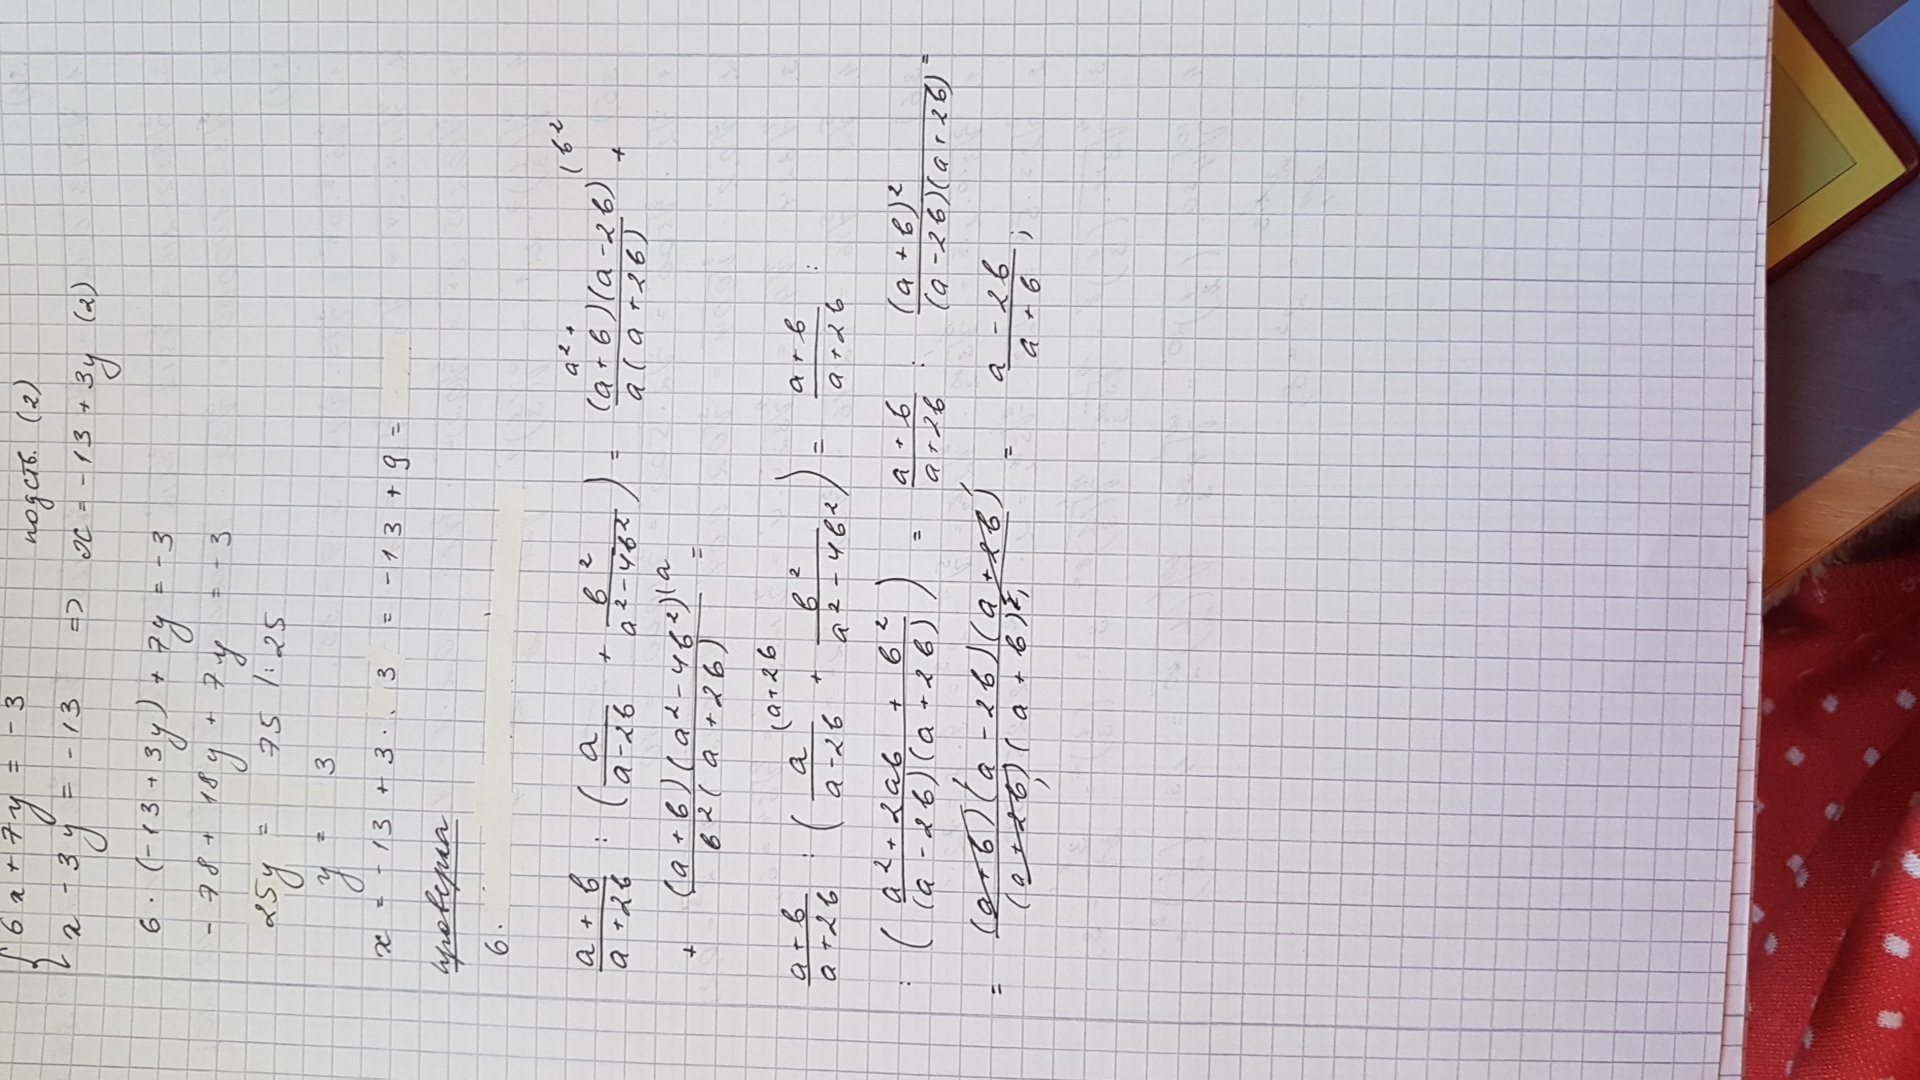 { 6x + 7y = -3 подст. (2)
x - 3y = -13 => x = -13 + 3y (2)
6 · (-13 + 3y) + 7y = -3
- 78 + 18y + 7y = -3
25y = 75 |: 25
y = 3
x = -13 + 3 · 3 = -13 + 9 =
проверка
6.
(a + b)/(a + 2b) : (a/(a - 2b) + b²/(a² - 4b²)) = ((a + b)(a - 2b))/(a(a + 2b)) (b² +
+ ((a + b)(a² - 4b²))/(b²(a + 2b)) (a =
(a + b)/(a + 2b) : (a/(a - 2b) (a + 2b + b²/(a² - 4b²)) = (a + b)/(a + 2b) :
: ((a² + 2ab + b²)/((a - 2b)(a + 2b))) = (a + b)/(a + 2b) : (a + b)²/((a - 2b)(a + 2b)) =
= ((a + b)(a - 2b)(a + 2b))/((a + 2b)(a + b)²) = (a - 2b)/(a + b) ;